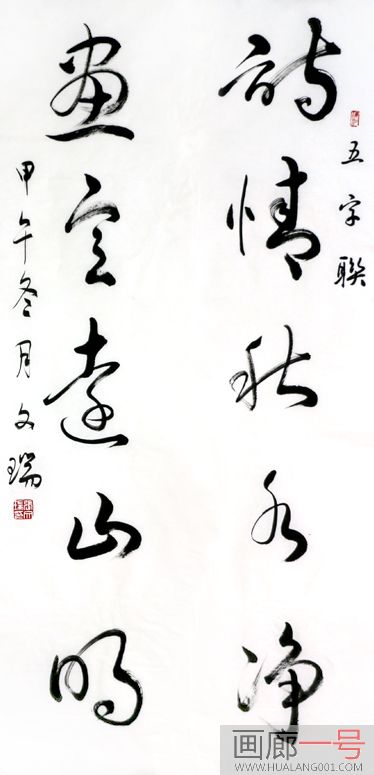 五字聯
詩情秋水净
畫意遠山明
甲午冬月文瑞
画廊一号
WWW.HUALANG001.COM